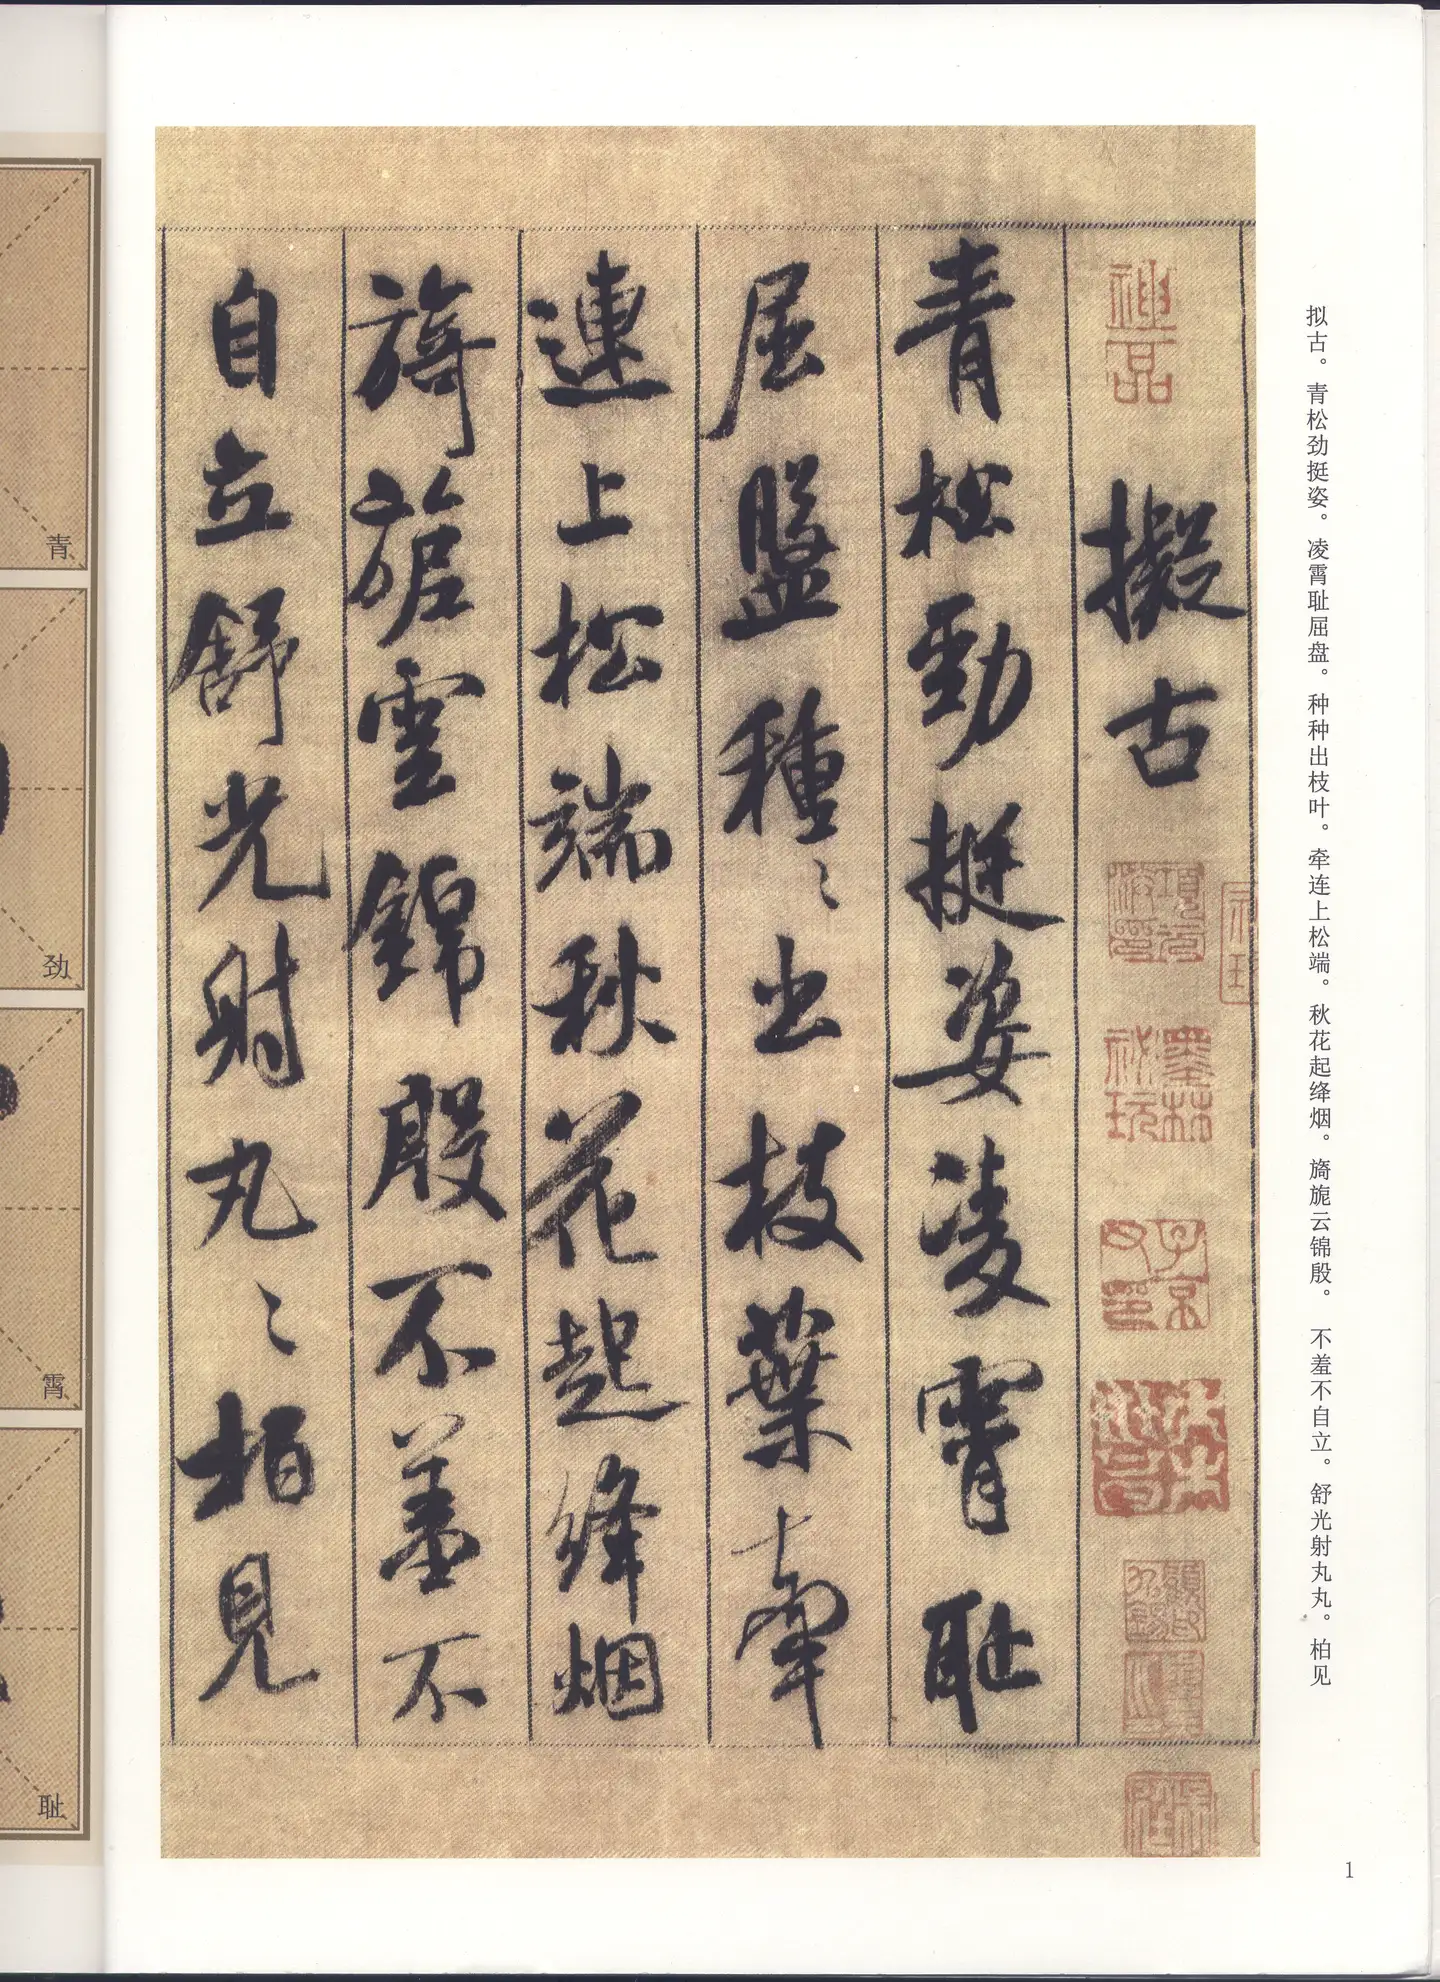 擬古
青松勁挺姿凌霄耻
屈盤種〻出枝葉牽
連上松端秋花起絳烟
旖旎雲錦殷不羞不
自立舒光射丸〻柏見
拟古。青松劲挺姿。凌霄耻屈盘。种种出枝叶。牵连上松端。秋花起绛烟。旖旎云锦殷。不羞不自立。舒光射丸丸。柏见
神品
項元汴印
墨林秘玩
子京父印
青
劲
霄
耻
1